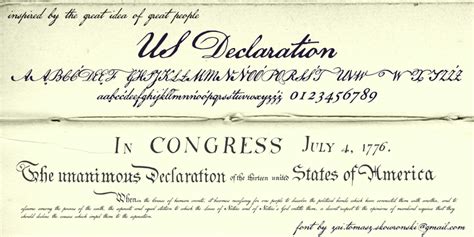 inspired by the great idea of great people
US Declaration
aąbcćdeęfghijklłmnńoópqrsśtuvwxyzźż 0123456789
IN CONGRESS JULY 4, 1776.
The unanimous Declaration of the thirteen united States of America
When in the Course of human events, it becomes necessary for one people to dissolve the political bands which have connected them with another, and to
assume among the powers of the earth, the separate and equal station to which the Laws of Nature and of Nature's God entitle them, a decent respect to the opinions of mankind requires that they
should declare the causes which impel them to the separation.
font by